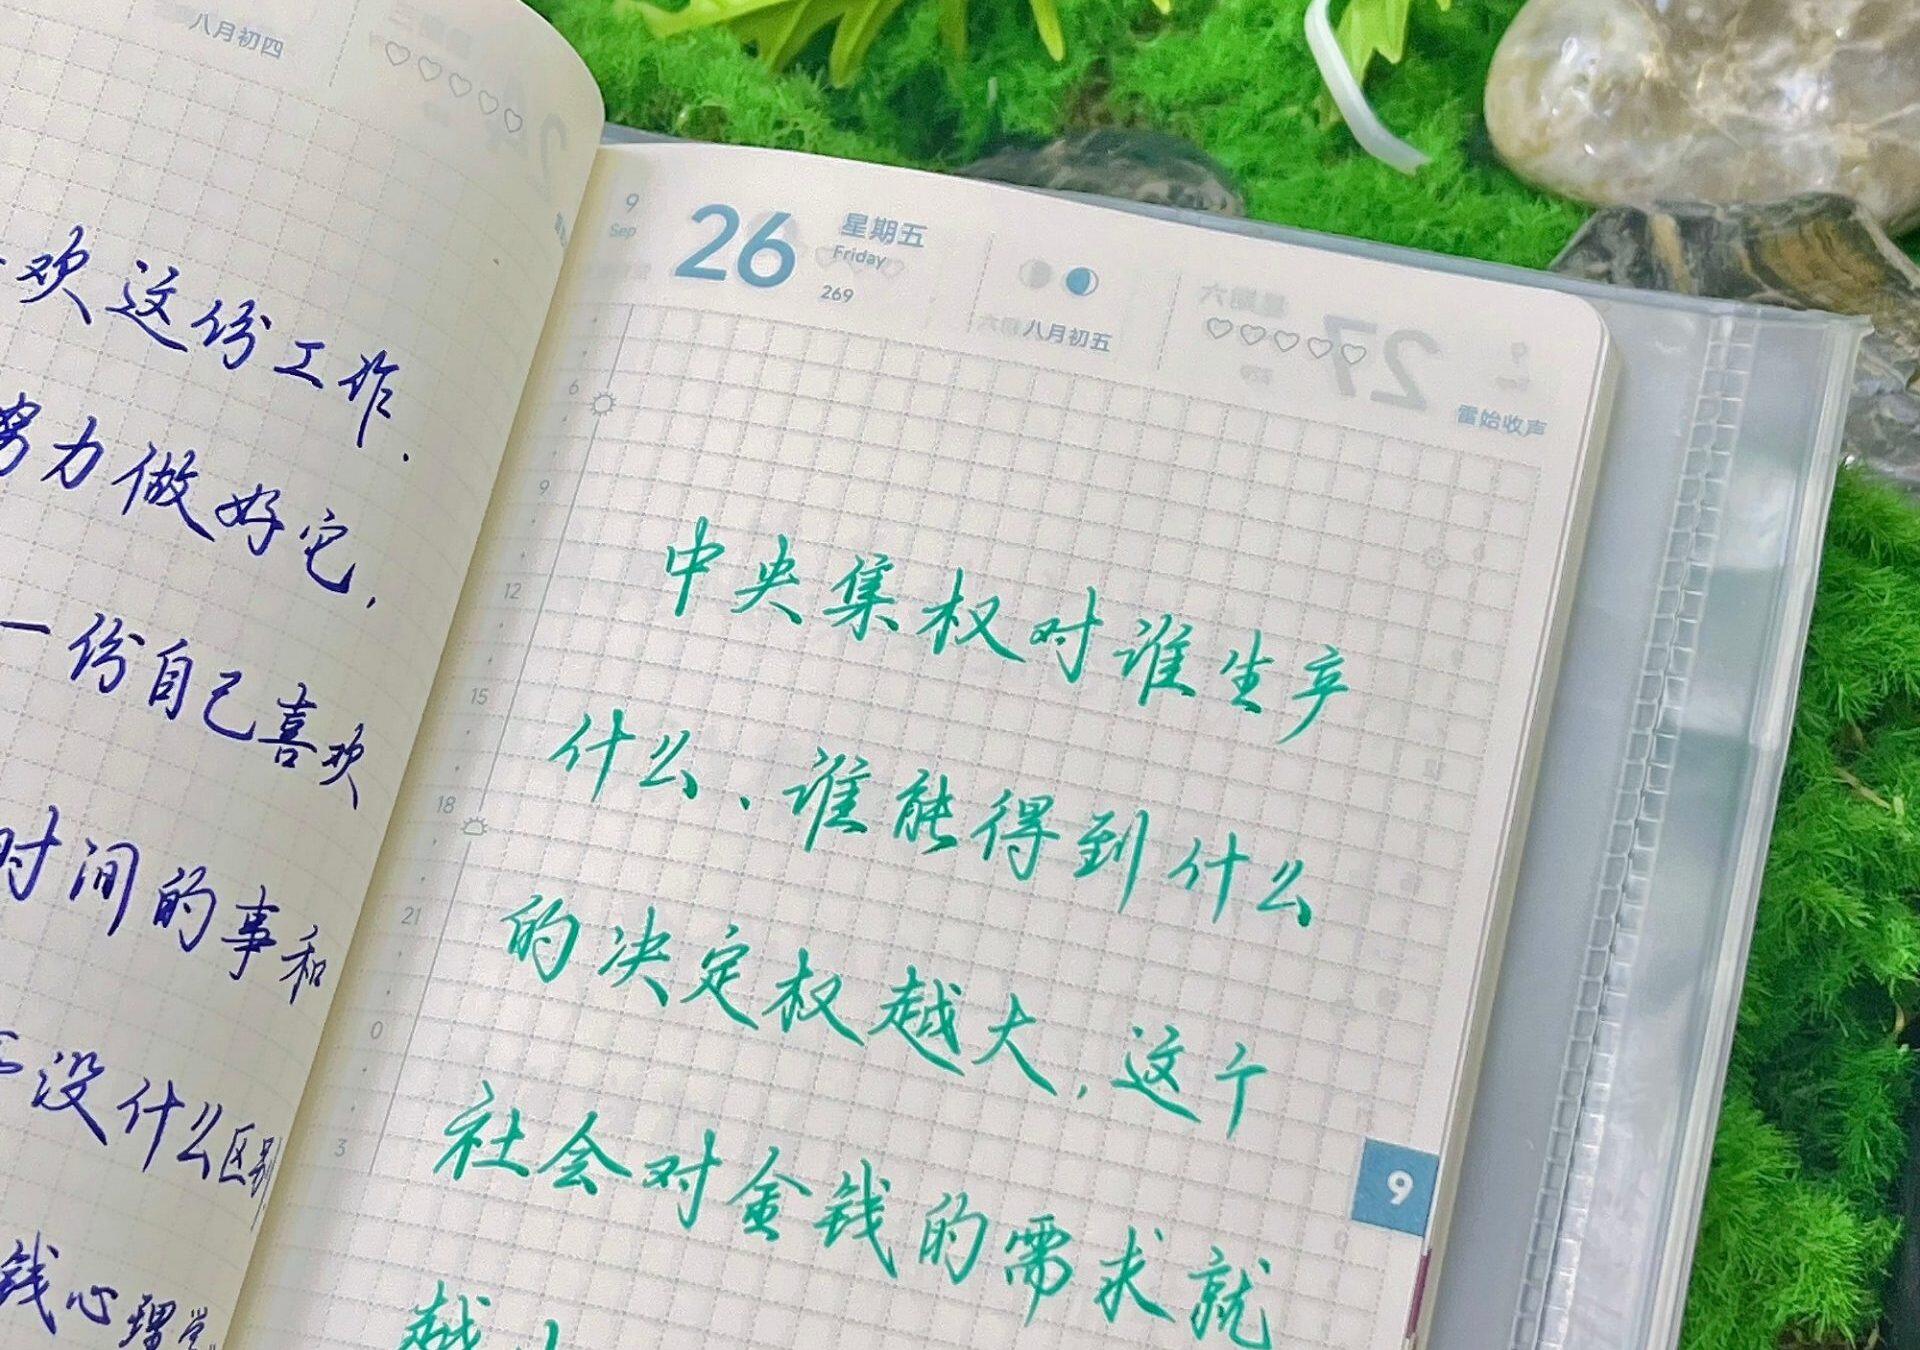 八月初四
欢这份工作.
努力做好它,
一份自己喜欢
时间的事和
没什么区别
钱心理学
9
Sep
26
星期五
Friday
269
八月初五
雷始收声
6
9
12
15
18
21
0
3
中央集权对谁生产
什么、谁能得到什么
的决定权越大,这个
社会对金钱的需求就
越小
9